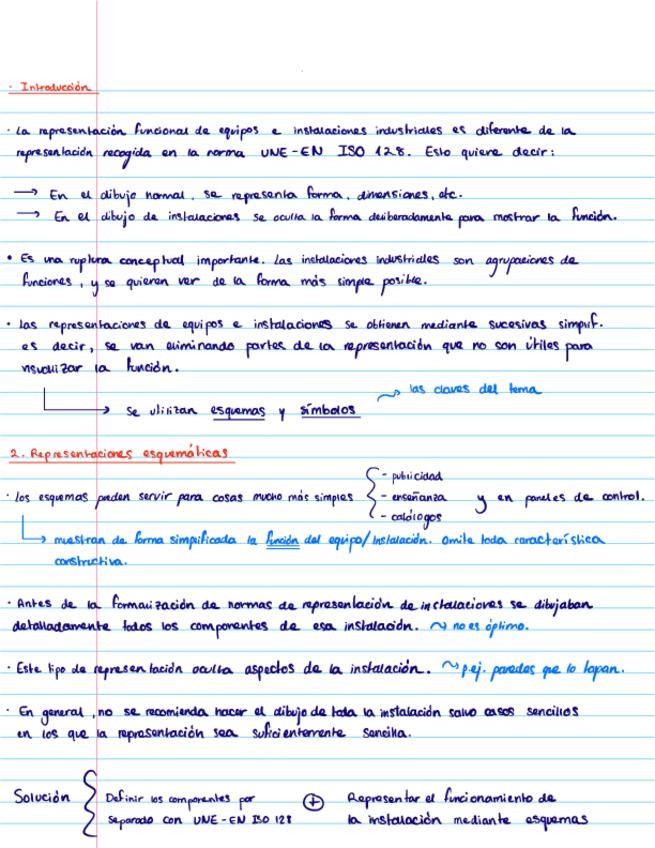 · Introducción
· La representación funcional de equipos e instalaciones industriales es diferente de la
representación recogida en la norma UNE-EN ISO 128. Esto quiere decir:
→ En el dibujo normal, se representa forma, dimensiones, etc.
→ En el dibujo de instalaciones se oculta la forma deliberadamente para mostrar la función.
• Es una ruptura conceptual importante. Las instalaciones industriales son agrupaciones de
funciones, y se quieren ver de la forma más simple posible.
· Las representaciones de equipos e instalaciones se obtienen mediante sucesivas simplif.
es decir, se van eliminando partes de la representación que no son útiles para
visualizar la función.
las claves del tema
→ se utilizan esquemas y símbolos
2. Representaciones esquemáticas
· los esquemas pueden servir para cosas mucho más simples { - publicidad
- enseñanza
- catálogos
y en paneles de control.
→ muestran de forma simplificada la función del equipo/instalación. Omite toda característica
constructiva.
· Antes de la formalización de normas de representación de instalaciones se dibujaban
detalladamente todos los componentes de esa instalación. ~ no es óptimo.
· Este tipo de representación oculta aspectos de la instalación. ~ p.ej. paredes que lo tapan.
· En general, no se recomienda hacer el dibujo de toda la instalación salvo casos sencillos
en los que la representación sea suficientemente sencilla.
Solución { Definir los componentes por
separado con UNE-EN ISO 128
+ Representar el funcionamiento de
la instalación mediante esquemas